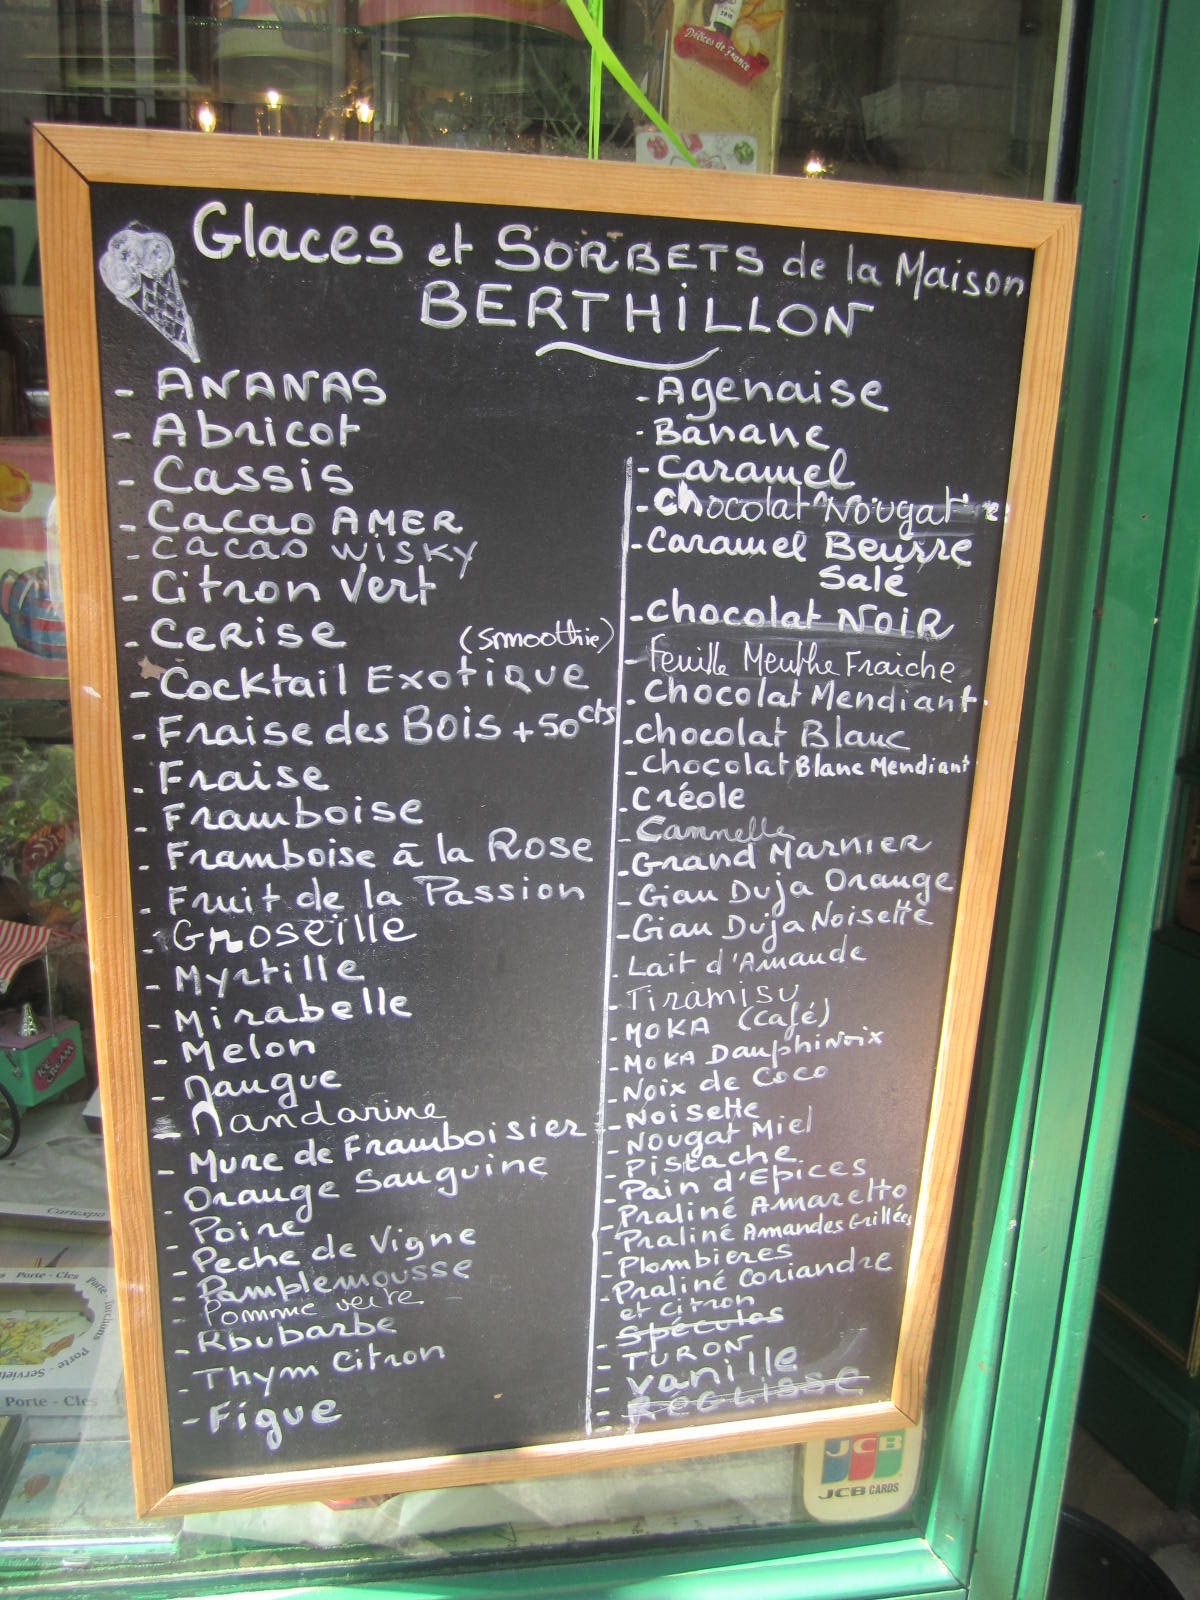 Délices de France
Glaces et SORBETS de la Maison
BERTHiLLON
- ANANAS
- Abricot
- Cassis
- Cacao AMER
- Cacao WiSKY
- Citron Vert
- CeRiSe (Smoothie)
- Cocktail Exotique
- Fraise des Bois + 50 cts
- Fraise
- Framboise
- Framboise à la Rose
- Fruit de la Passion
- Groseille
- Myrtille
- Mirabelle
- Melon
- Mangue
- Mandarine
- Mure de Framboisier
Orange Sanguine
- Poire
- Peche de Vigne
- Pamblemousse
- Pomme verte
- Rbubarbe
- Thym Citron
- Figue
- Agenaise
- Banane
- Caramel
- Chocolat Nougat
- Caramel Beurre
Salé
- Chocolat NoiR
- Feuille Menthe Fraiche
- Chocolat Mendiant
- Chocolat Blanc
- Chocolat Blanc Mendiant
- Créole
- Cannelle
- Grand Marnier
- Gian Duja Orange
- Gian Duja Noisette
- Lait d'Amande
- Tiramisu
- MOKA (Café)
- MOKA Dauphinoix
- Noix de Coco
- Noisette
- Nougat Miel
- Pistache
- Pain d'Epices
- Praliné Amaretto
- Praliné Amandes Grillées
- Plombieres
- Praliné Coriandre
et citron
- Spéculos
- TURON
- Vanille
- RéGLisse
ICE CREAM
Cartexpo
Porte - Cles
Porte - Torchons
Porte - Serviet
Porte - Cles
JCB
JCB CARDS